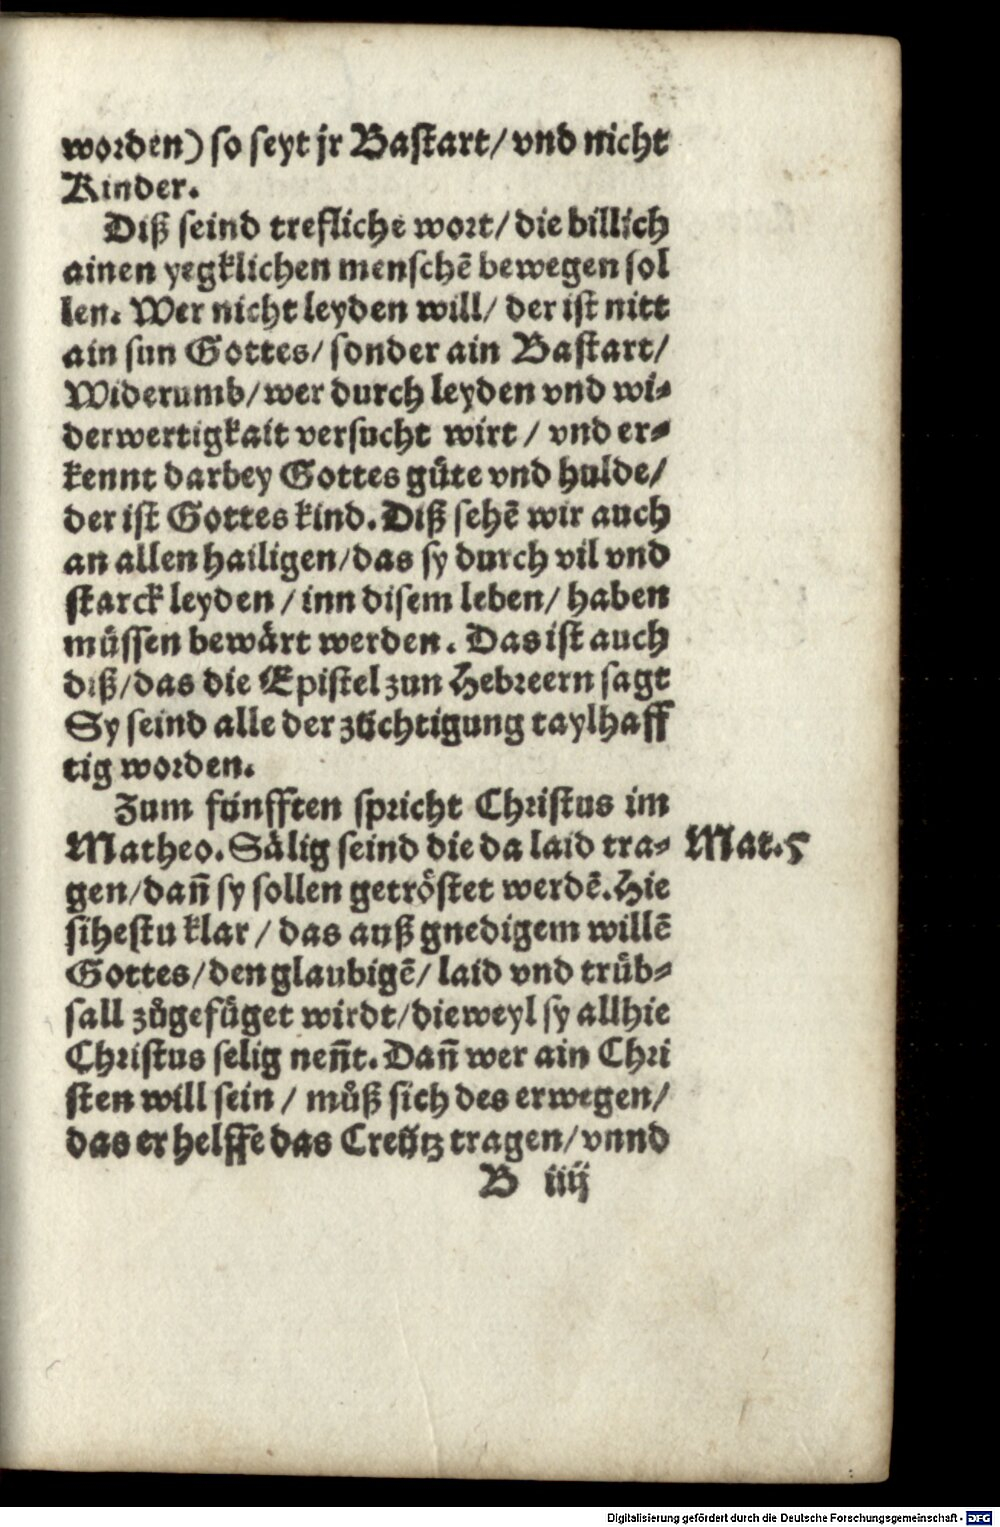 worden) so seyt jr Bastart/ vnd nicht
Kinder.
Diß seind trefliche wort/ die billich
ainen yegklichen menschē bewegen sol
len. Wer nicht leyden will/ der ist nitt
ain sun Gottes/ sonder ain Bastart/
Widerumb/ wer durch leyden vnd wi-
derwertigkait versucht wirt / vnd er-
kennt darbey Gottes guͤte vnd hulde/
der ist Gottes kind. Diß sehē wir auch
an allen hailigen/ das sy durch vil vnd
starck leyden / inn disem leben/ haben
muͤssen bewaͤrt werden. Das ist auch
diß/ das die Epistel zun Hebreern sagt
Sy seind alle der zuͤchtigung taylhaff
tig worden.
Zum fünfften spricht Christus im
Matheo. Saͤlig seind die da laid tra-
Mat.5
gen/ dañ sy sollen getroͤstet werdē. Hie
sihestu klar / das auß gnedigem willē
Gottes/ den glaubigē/ laid vnd truͤb-
sall zůgefuͤget wirdt/ dieweyl sy allhie
Christus selig neñt. Dañ wer ain Chri
sten will sein / můß sich des erwegen/
das er helffe das Creuͤtz tragen/ vnnd
B iiij
Digitalisierung gefördert durch die Deutsche Forschungsgemeinschaft - DFG